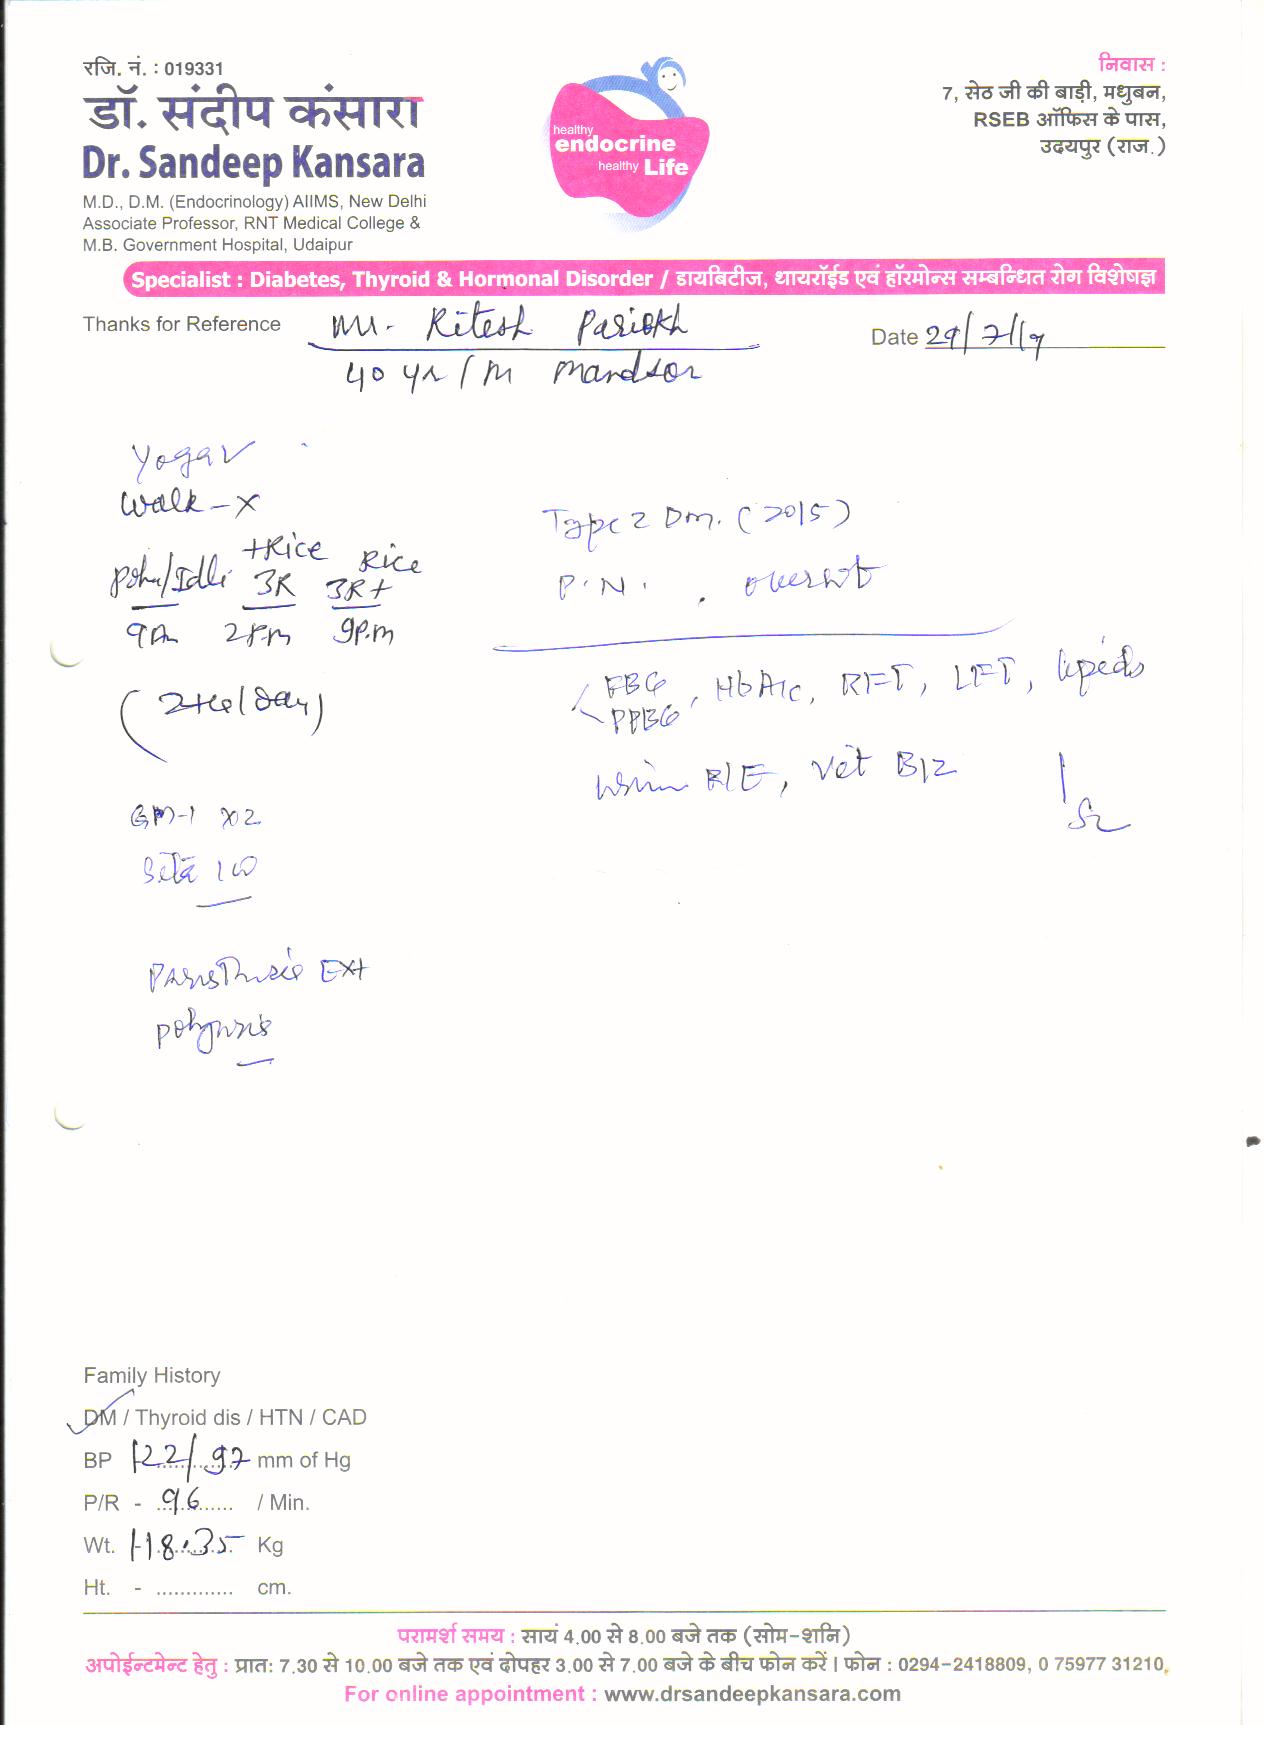 रजि. नं. : 019331
डॉ. संदीप कंसारा
Dr. Sandeep Kansara
M.D., D.M. (Endocrinology) AIIMS, New Delhi
Associate Professor, RNT Medical College &
M.B. Government Hospital, Udaipur
healthy
endocrine
healthy Life
निवास :
7, सेठ जी की बाड़ी, मधुबन,
RSEB ऑफिस के पास,
उदयपुर (राज.)
Specialist : Diabetes, Thyroid & Hormonal Disorder / डायबिटीज, थायरॉईड एवं हॉरमोन्स सम्बन्धित रोग विशेषज्ञ
Thanks for Reference Mr. Ritesh Date
40 yr / M Mandsor
Yoga ✓
Walk - X
+Rice Rice
Poha/Idli 3R 3R+
9A 2P.m 9p.m
Type 2 Dm. (2015)
P.N. overwt
FBG, HbA1c, RFT, LFT, lipids
PPBG
R/E, Vit B12
GM-1 X2
Sita 100
Ext
Family History
DM / Thyroid dis / HTN / CAD
BP 122/97 mm of Hg
P/R - 96 / Min.
Wt. - 118.35 Kg
Ht. - ............. cm.
परामर्श समय : सायं 4.00 से 8.00 बजे तक (सोम-शनि)
अपोईन्टमेन्ट हेतु : प्रात: 7.30 से 10.00 बजे तक एवं दोपहर 3.00 से 7.00 बजे के बीच फोन करें। फोन : 0294-2418809, 0 75977 31210,
For online appointment : www.drsandeepkansara.com